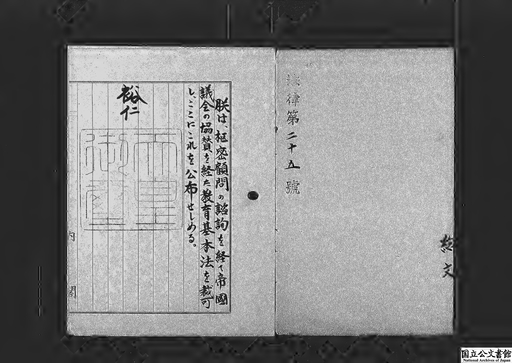 法律第二十五號
総文
朕は、枢密顧問の諮詢を経て、帝國
議会の協賛を経た教育基本法を裁可
し、ここにこれを公布せしめる。
裕仁
内閣
国立公文書館
National Archives of Japan